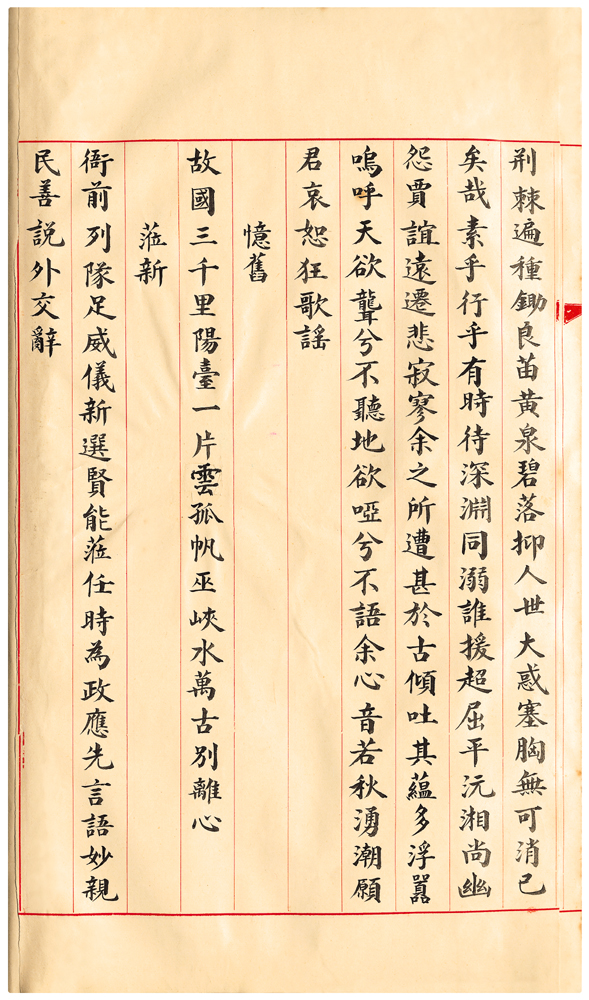 荆棘遍種鋤良苗黄泉碧落抑人世大惑塞胸無可消已
矣哉素乎行乎有時待深淵同溺誰援超屈平沅湘尚幽
怨賈誼遠遷悲寂寥余之所遭甚於古傾吐其蘊多浮囂
嗚呼天欲聾兮不聽地欲啞兮不語余心音若秋湧潮願
君哀恕狂歌謡
憶舊
故國三千里陽臺一片雲孤帆巫峽水萬古別離心
蒞新
衙前列隊足威儀新選賢能蒞任時為政應先言語妙親
民善説外交辭